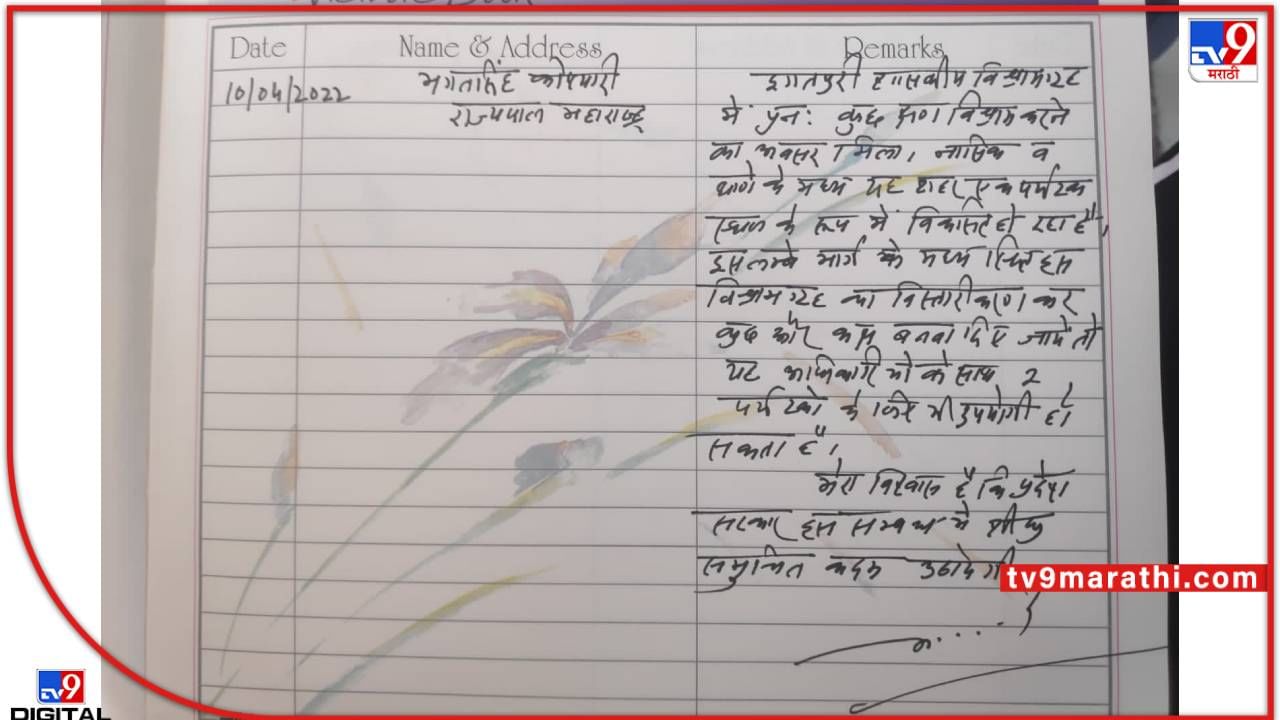 Visitors Book
TV9
मराठी
Date Name & Address Remarks
10/04/2022 भगतसिंह कोश्यारी इगतपुरी शासकीय विश्रामगृह
राज्यपाल महाराष्ट्र में पुन: कुछ क्षण विश्राम करने
का अवसर मिला। नासिक व
थाणे के मध्य यह शहर एक पर्यटक
स्थान के रूप में विकसित हो रहा है।
इस लम्बे मार्ग के मध्य स्थित इस
विश्रामगृह का विस्तारीकरण कर
कुछ और कक्ष बनवा दिए जायें तो
यह अधिकारीयों के साथ 2
पर्यटकों के लिए भी उपयोगी हो
सकता है।
मेरा विश्वास है कि प्रदेश
सरकार इस सम्बन्ध में शीघ्र
समुचित कदम उठायेगी
tv9marathi.com
TV9
DIGITAL